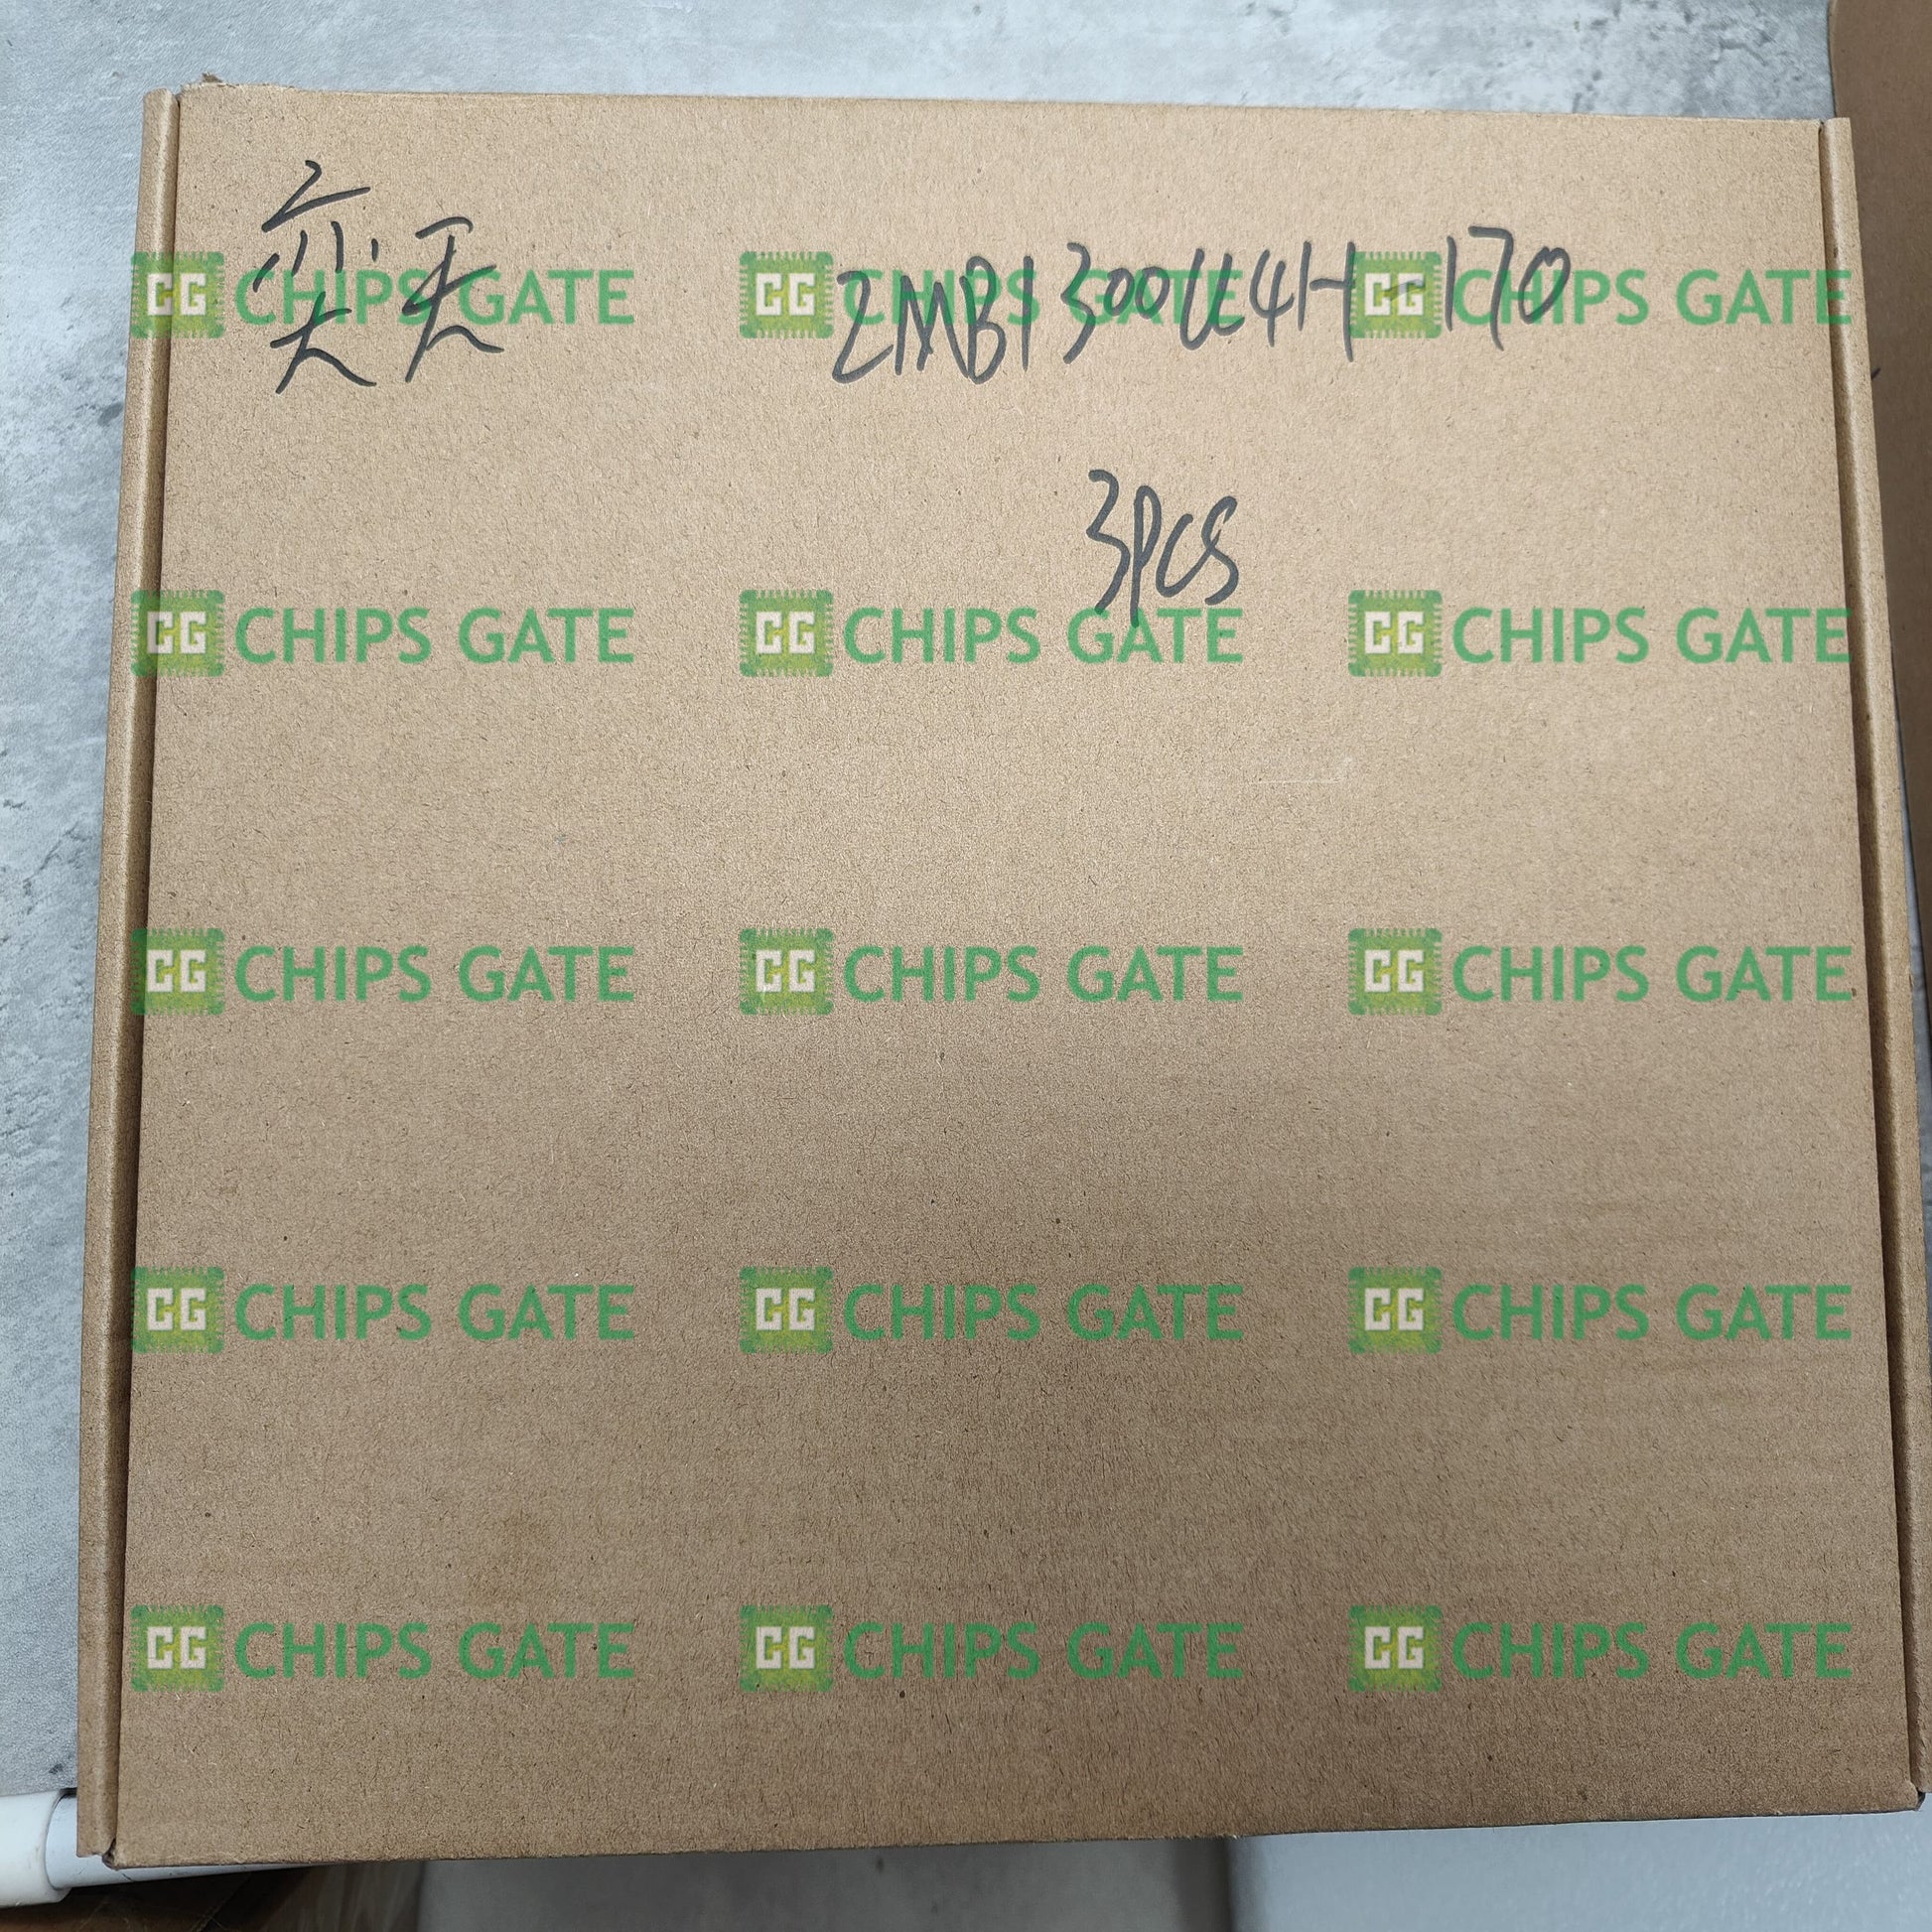 奕天 2MBI300U4H-170
3PCS
CG CHIPS GATE CG CHIPS GATE CG CHIPS GATE
CG CHIPS GATE CG CHIPS GATE CG CHIPS GATE
CG CHIPS GATE CG CHIPS GATE CG CHIPS GATE
CG CHIPS GATE CG CHIPS GATE CG CHIPS GATE
CG CHIPS GATE CG CHIPS GATE CG CHIPS GATE